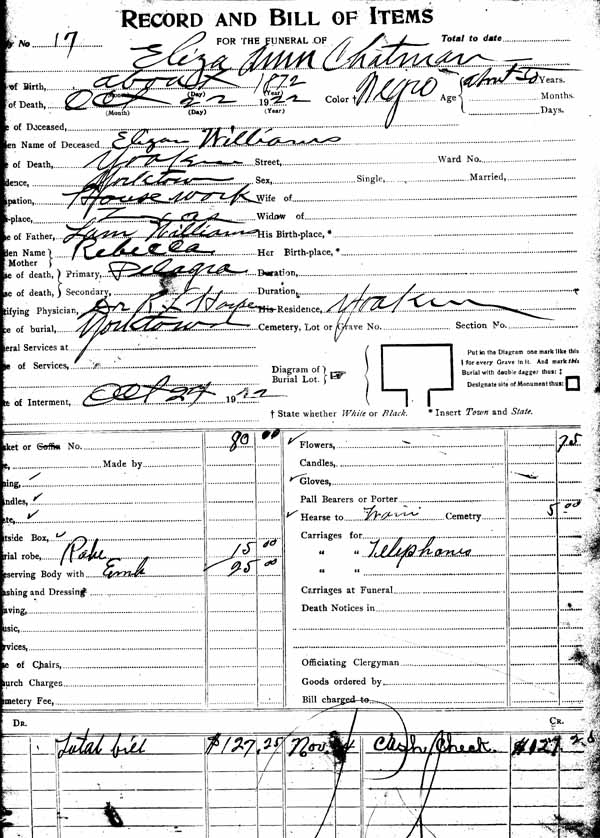 RECORD AND BILL OF ITEMS
No. 17 FOR THE FUNERAL OF Total to date
Eliza Ann Chatman
of Birth, about 1872
(Day) (Year)
of Death, Oct 22 1922 Color † Negro Age about 50 Years.
(Month) (Day) (Year) Months.
Days.
of Deceased,
en Name of Deceased Eliza Williams
of Death, Yoakum Street, Ward No.
dence, Yorktown Sex, Single, Married,
pation, House work Wife of
-place, Texas Widow of
e of Father, Williams His Birth-place, *
den Name Rebecca Her Birth-place, *
Mother
e of death, Primary, Pelagra Duration,
e of death, Secondary, Duration,
tifying Physician, Dr R L His Residence, Yoakum
e of burial, Yorktown Cemetery, Lot or Grave No. Section No.
eral Services at
e of Services,
Diagram of Burial Lot.
Put in the Diagram one mark like this
I for every Grave in it. And mark this
Burial with double dagger thus: ‡
Designate site of Monument thus:
e of Interment, Oct 24 1922
† State whether White or Black. * Insert Town and State.
sket or Coffin No. 80 00 Flowers, 75
Made by Candles,
Gloves,
ndles, Pall Bearers or Porter
Hearse to Cemetry 5 00
tside Box, Carriages for
rial robe, Robe 15 00 " " Telephones
eserving Body with Emb 25 00 " "
ashing and Dressing Carriages at Funeral
aving, Death Notices in
usic,
rvices,
e of Chairs, Officiating Clergyman
urch Charges Goods ordered by
metery Fee, Bill charged to
DR. CR.
Total bill $127.25 Nov Cash Check $127.25